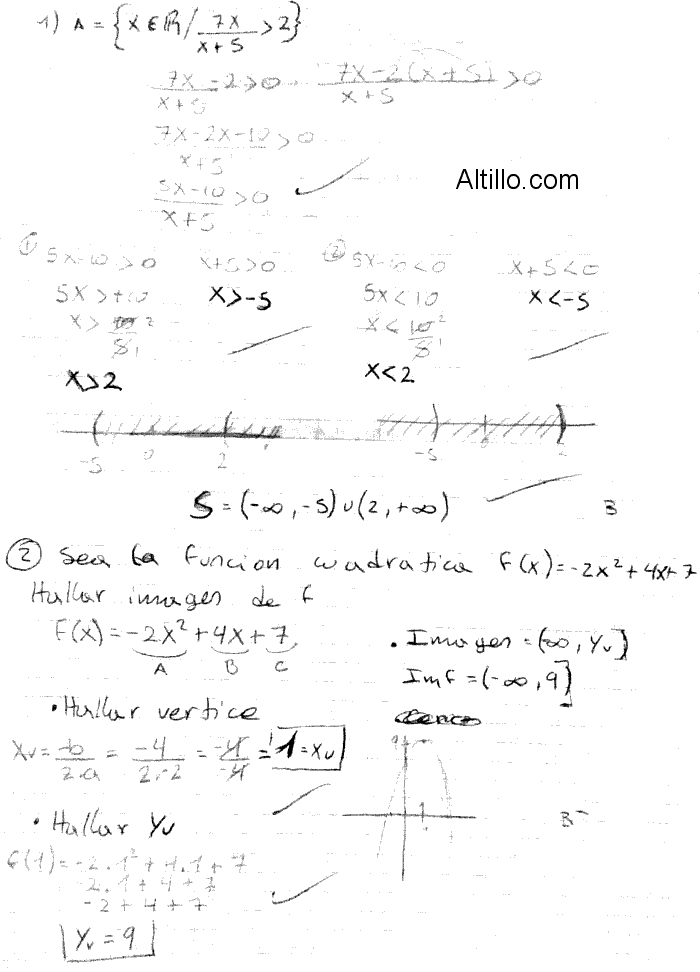 1) A = {x ∈ R / 7x/(x+5) > 2}
7x/(x+5) - 2 > 0   7x-2(x+5)/(x+5) > 0
7x-2x-10/(x+5) > 0
5x-10/(x+5) > 0
Altillo.com
① 5x-10 > 0   x+5 > 0   ② 5x-10 < 0   x+5 < 0
5x > +10   x > -5   5x < 10   x < -5
x > 10/5   2   1   x < 10/5   2   1
x > 2   x < 2
-5   0   2   -5   2
S = (-∞, -5) ∪ (2, +∞)   B
② Sea la funcion cuadratica F(x) = -2x² + 4x + 7
Hallar imagen de f
F(x) = -2x² + 4x + 7
A   B   C
• Imagen = (∞, Yv]
Imf = (-∞, 9]
• Hallar vertice
Xv = -b/2.a = -4/2.-2 = -4/-4 = 1 = Xv
9   1
• Hallar Yv
B-
f(1) = -2.1² + 4.1 + 7
-2.1 + 4 + 7
-2 + 4 + 7
Yv = 9